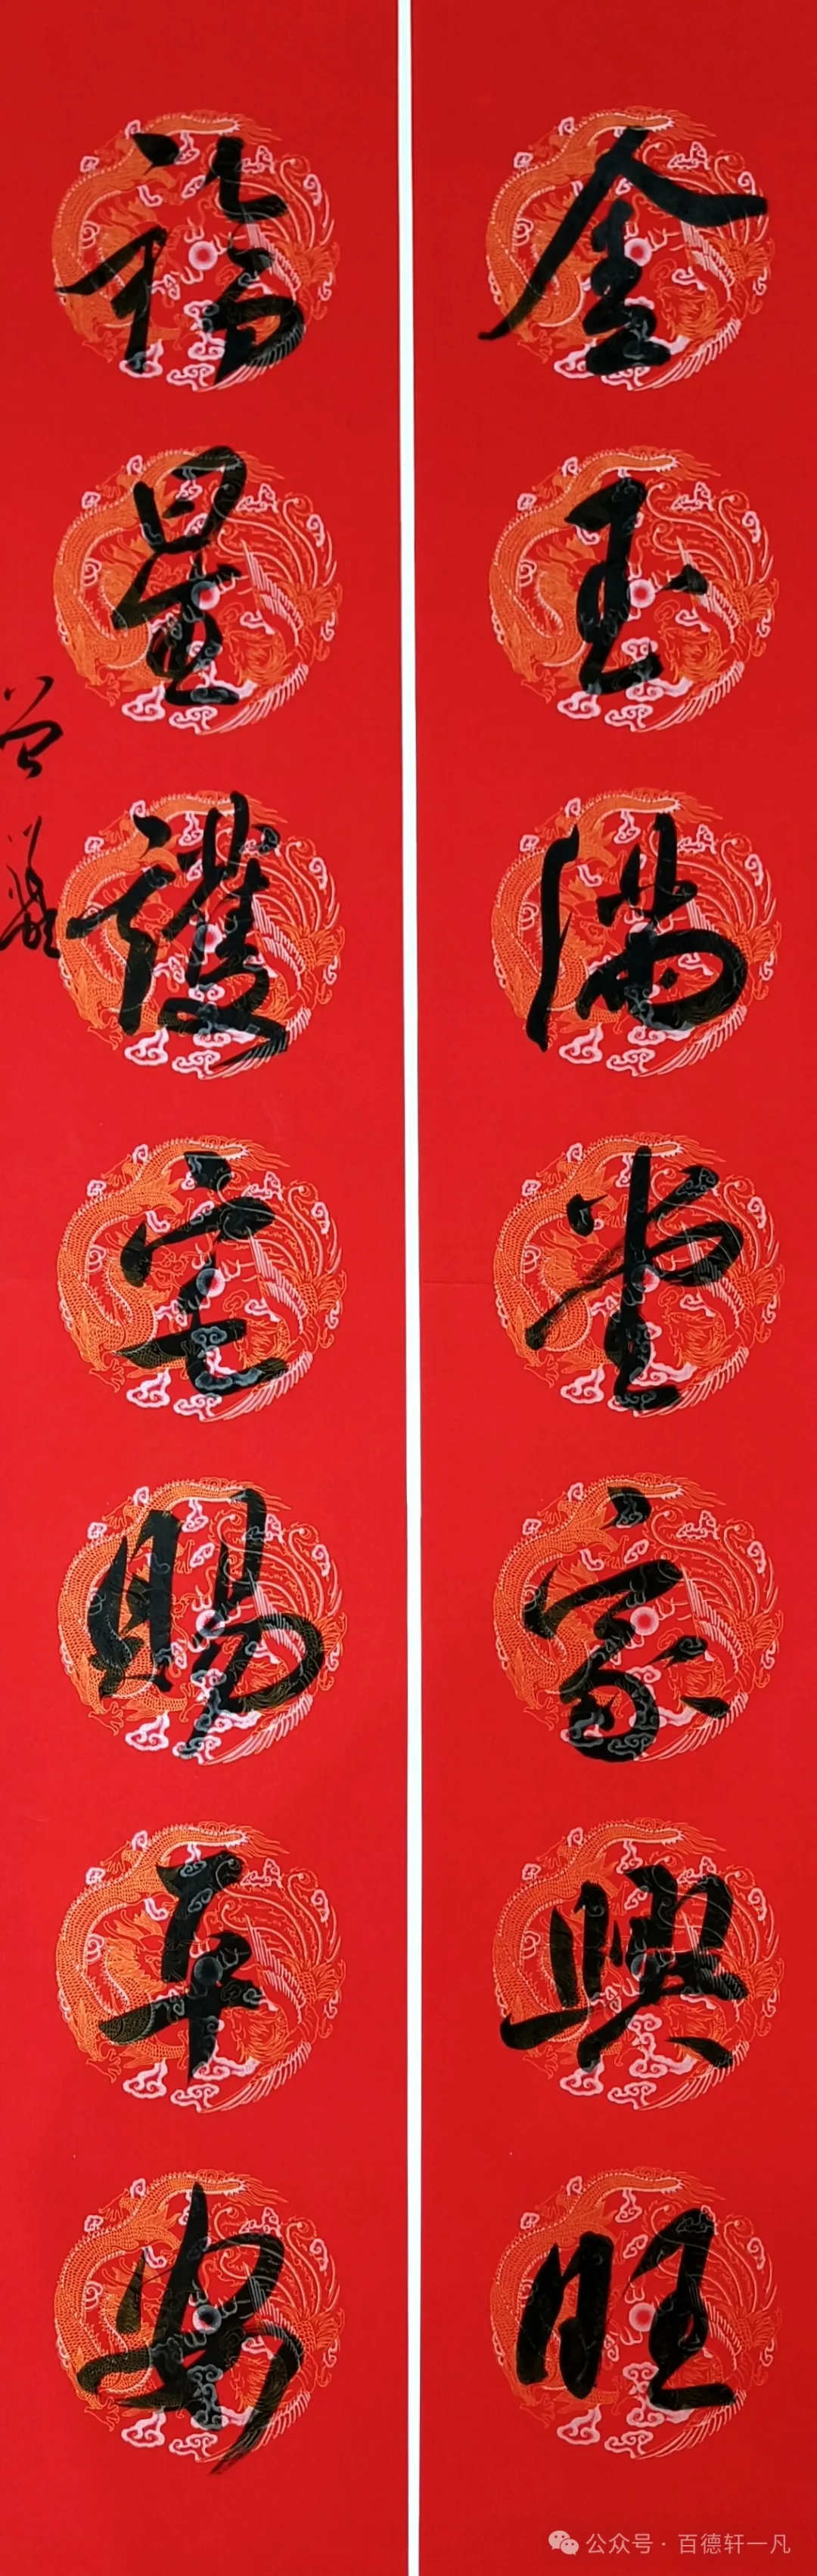 金玉滿堂家興旺
福星護宅賜平安
公众号 · 百德轩一凡